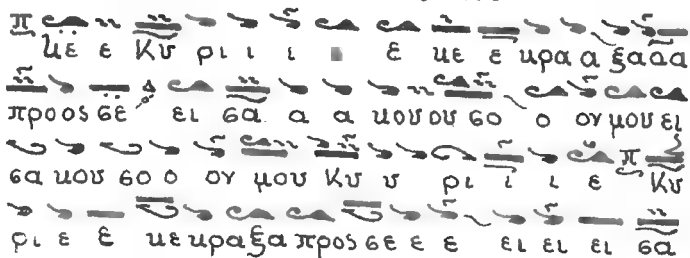 Κε ε Κυ ρι ι ι ε κε ε κρα α ξααα
προος σε ει σα α α κουου σο ο ου μου ει
σα κου σο ο ου μου Κυ υ ρι ι ι ε Κυ
ρι ε ε κεκραξα προς σε ε ε ει ει ει σα